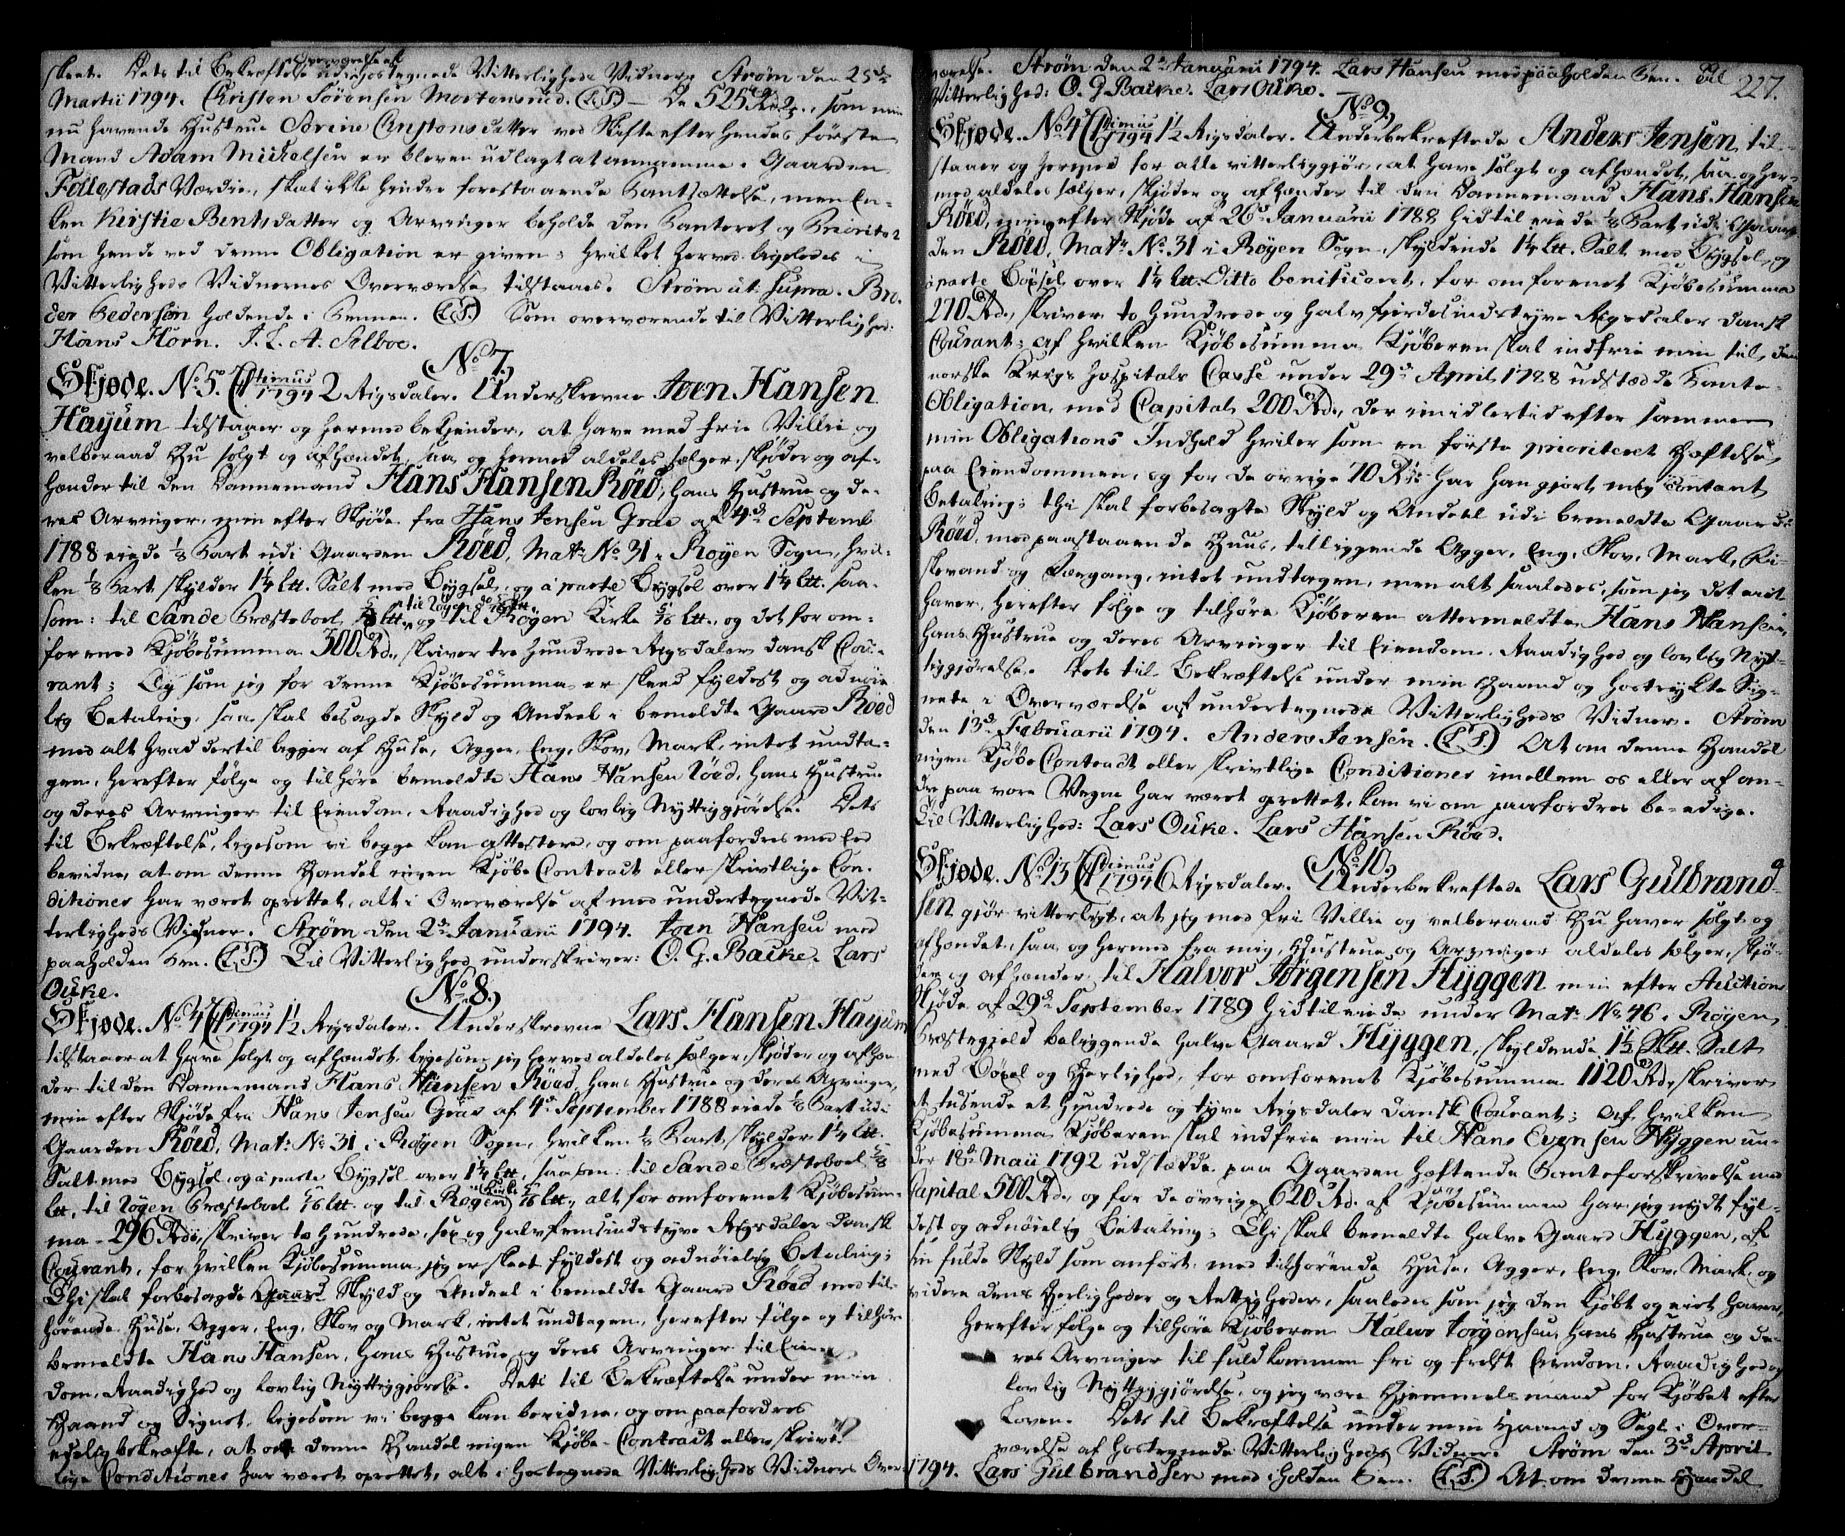 skeet. Dets til Bekræftelse i Overværelse af undertegnede Vitterligheds Vidner. Strøm den 25de
Martii 1794. Christen Sørensen Mortensrud. (L.S.) — De 525 Rd. 2 , som min
nu havende Hustrue Sørine Christensdatter ved Skifte efter hendes første
Mand Adam Mickelsen er bleven udlagt at annamme i Gaarden
Follestads Værdie, skal ikke hindre forestaaende Pantsættelse, men En-
ken Kirstie Bentsdatter og Arvinger beholde den Panteret og Prioritet
som hende ved denne Obligation er given; hvilket herved ligeledes i
Vitterligheds Vidnernes Overværelse tilstaaes. Strøm ut supra. Pe-
der Pedersen holdende i Pennen. (L.S.) Som overværende til Vitterlighed:
Hans Horn. J. L. A. Selboe.
No 7,
Skjøde. No 5. Cl. 1mus 1794 2 Rigsdaler. Underskrevne Joen Hansen
Hayum tilstaaer og hermed bekjender, at have med frie Villie og
velberaad Hu solgt og afhændet, saa og hermed aldeles sælger, skjøder og af-
hænder til den Dannemand Hans Hansen Röed, hans Hustrue og de-
res Arvinger, min efter Skjøde fra Hans Jensen Grae af 4de Septemb
1788 eiede 1/8 Part udi Gaarden Röed, Matr: No 31 i Röyen Sogn, hvil-
ken 1/8 Part skylder 1 1/4 Ltt. Salt med Bygsel, og à parte Bygsel over 1 1/4 Ltt. saa-
som: til Sande Præsteboel 5/8 Ltt., til Röyen do 1/6 Ltt. og til Röyen Kirke 5/16 Ltt., og det for om-
forened Kjöbesumma 300 Rd., skriver tre hundrede Rigsdaler dansk Cou-
rant; Og som jeg for denne Kjöbesumma er skeed fyldest og adnöie-
lig Betaling, saa skal besagde Skyld og Andeel i bemeldte Gaard Röed
med alt hvad dertil ligger af Huse, Agger, Eng, Skov, Mark, intet undta-
gen, herefter fölge og tilhöre bemeldte Hans Hansen Röed, hans Hustrue
og deres Arvinger til Eiendom, Raadighed og lovlig Nyttiggjörelse. Dets
til Bekræftelse, ligesom vi begge kan attestere, og om paafordres med Eed
bevidne, at om denne Handel ingen Kjöbe Contract eller skrivtlige Con-
ditioner har været oprettet, alt i Overværelse af med undertegnede Vit-
terligheds Vidner. Strøm den 2de Januarii 1794. Joen Hansen med
paaholden Pen. (L.S.) Til Vitterlighed underskriver: O. G. Bache. Lars
Ouke.
No 8,
Skjøde. No 4 Cl. 1mus 1794 1 1/2 Rigsdaler. Underskrevne Lars Hansen Hayum
tilstaaer at have solgt og afhændet, ligesom jeg herved aldeles sælger, skjøder og afhæn-
der til den Dannemand Hans Hansen Röed, hans Hustrue og deres Arvinger,
min efter Skjøde fra Hans Jensen Grae af 4de September 1788 eiede 1/8 Part udi
Gaarden Röed, Matr: No 31 i Röyen Sogn, hvilken 1/8 Part skylder 1 1/4 Ltt.
Salt med Bygsel, og à parte Bygsel over 1 1/4 Ltt., saasom: til Sande Præsteboel 5/8
Ltt., til Röyen Præsteboel 1/6 Ltt. og til Röyen Kirke 5/16 Ltt., alt for omforenet Kjöbesum-
ma 296 Rd., skriver to hundrede, sex og halvfemsindstyve Rigsdaler dansk
Courant, for hvilken Kjöbesumma jeg er skeet fyldest og adnöielig Betaling;
Thi skal forbesagde Skyld og Andeel i bemeldte Gaard Röed med til-
hörende Huse, Agger, Eng, Skov og Mark, intet undtagen, herefter fölge og tilhöre
bemeldte Hans Hansen, hans Hustrue og deres Arvinger til Eien-
dom, Raadighed og lovlig Nyttiggjörelse. Dets til Bekræftelse under min
Haand og Signet, ligesom vi begge kan bevidne, og om paafordres
edelig bekræfte, at om denne Handel ingen Kjöbe-Contract eller skrivt-
lige Conditioner har været oprettet, alt i hostegnede Vitterligheds Vidners Over-
værelse. Strøm den 2de Januarii 1794. Lars Hansen med paaholden Pen. Til 227.
Vitterlighed: O. G. Bache. Lars Ouke.
No 9,
Skjøde. No 4 Cl. 1mus 1794 1 1/2 Rigsdaler. Underbekræftede Anders Jensen, til-
staaer og hermed for alle vitterliggjør, at have solgt og afhændet, saa og her-
med aldeles sælger, skjøder og afhænder til den Dannemand Hans Hansen
Röed, min efter Skjøde af 26de Januarii 1788 hidtil eiede 1/8 Part udi Gaar-
den Röed, Matr. No 31 i Röyen Sogn, skyldende 1 1/4 Ltt. Salt med Bygsel, og
à parte Böxsel over 1 1/4 Ltt. Ditto beneficeret, for omforenet Kjöbesumma
270 Rd., skriver to hundrede og halvfjerdesindstyve Rigsdaler dansk
Courant; af hvilken Kjöbesumma Kjöberen skal indfrie min til den
norske Krigs Hospitals Casse under 29de April 1788 udstædde Pante-
Obligation, med Capital 200 Rd., der imidlertid efter samme
min Obligations Indhold hviler som en förste prioriteret Hæftelse
paa Eiendommen, og for de övrige 70 Rd. har han gjort mig contant
Betaling; thi skal forbesagte Skyld og Andeel udi bemeldte Gaard
Röed, med paastaaende Huus, tilliggende Agger, Eng, Skov, Mark, Fi-
skevand og Færgang, intet undtagen, men alt saaledes, som jeg det eiet
haver, herefter fölge og tilhöre Kjöberen attermeldte Hans Hansen,
hans Hustrue og deres Arvinger til Eiendom, Raadighed og lovlig Nyt-
tiggjörelse. Dets til Bekræftelse under min Haand og hostrykte Sig-
nete i Overværelse af undertegnede Vitterligheds Vidner. Strøm
den 13de Februarii 1794. Anders Jensen. (L.S.) At om denne Handel
ingen Kjöbe Contract eller skrivtlige Conditioner imellem os eller af an-
dre paa vore Vegne har været oprettet, kan vi om paafordres be-edige.
Til Vitterlighed: Lars Ouke. Lars Hansen Röed.
No 10,
Skjøde. No 13 Cl. 1mus 1794 6 Rigsdaler. Underbekræftede Lars Gulbrand-
sen gjör vitterligt, at jeg med fri Villie og velberaad Hu haver solgt og
afhændet, saa og hermed fra mig, Hustrue og Arvinger aldeles sælger, skjö-
der og afhænder til Halvor Jörgensen Hyggen min efter Auctions
Skjøde af 29de September 1789 hidtil eiede under Matr: No 46 i Röyen
Præstegjeld beliggende halve Gaard Hyggen, skyldende 1 1/2 Sktt. Salt
med Böxel og Herlighed, for omforenet Kjöbesumma 1120 Rd., skriver
et tusende et hundrede og tyve Rigsdaler dansk Courant; af hvilken
Kjöbesumma Kjöberen skal indfrie min til Hans Evensen Hyggen un-
der 18de Maii 1792 udstædde, paa Gaarden hæftende Panteforskrivelse med
Capital 500 Rd., og for de övrige 620 Rd. af Kjöbesummen har jeg nydt fyl-
dest og adnöielig Betaling; Thi skal bemeldte halve Gaard Hyggen, af
sin fulde Skyld som anfört, med tilhörende Huse, Agger, Eng, Skov, Mark og
videre dens Herligheder og Rettigheder, saaledes som jeg den kjöbt og eiet haver,
herefter fölge og tilhöre Kjöberen Halvor Jörgensen, hans Hustrue og de-
res Arvinger til fuldkommen fri og frelst Eiendom, Raadighed og
lovlig Nyttiggjörelse, og jeg være Hjemmelsmand for Kjöbet efter
Loven. Dets til Bekræftelse under min Haand og Segl i Over-
værelse af hostegnede Vitterligheds Vidner. Strøm den 3de April
1794. Lars Gulbrandsen med iholden Pen. (L.S.) At om denne Handel